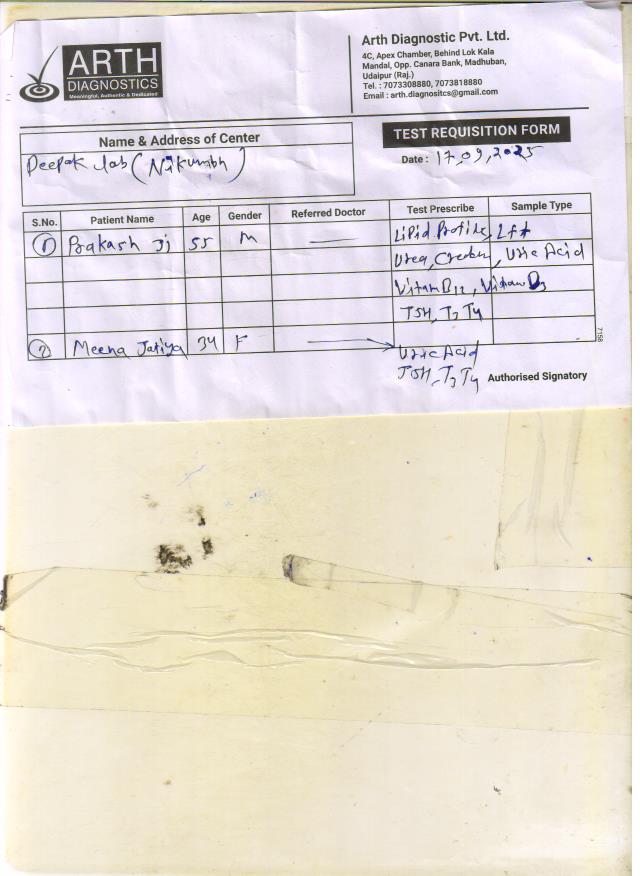 ARTH
DIAGNOSTICS
Meaningful, Authentic & Dedicated
Arth Diagnostic Pvt. Ltd.
4C, Apex Chamber, Behind Lok Kala
Mandal, Opp. Canara Bank, Madhuban,
Udaipur (Raj.)
Tel. : 7073308880, 7073818880
Email : arth.diagnositcs@gmail.com
Name & Address of Center
Deepak Lab (Nikumbh)
TEST REQUISITION FORM
Date : 17,09,2025
S.No. Patient Name Age Gender Referred Doctor Test Prescribe Sample Type
1 Prakash Ji 55 M Lipid Profile, Lft
Urea, Uric Acid
Vitam B12, Vitam D3
TSH, T3 T4
2 Meena Jatiya 34 F Uric Acid
TSH, T3 T4
Authorised Signatory
7156